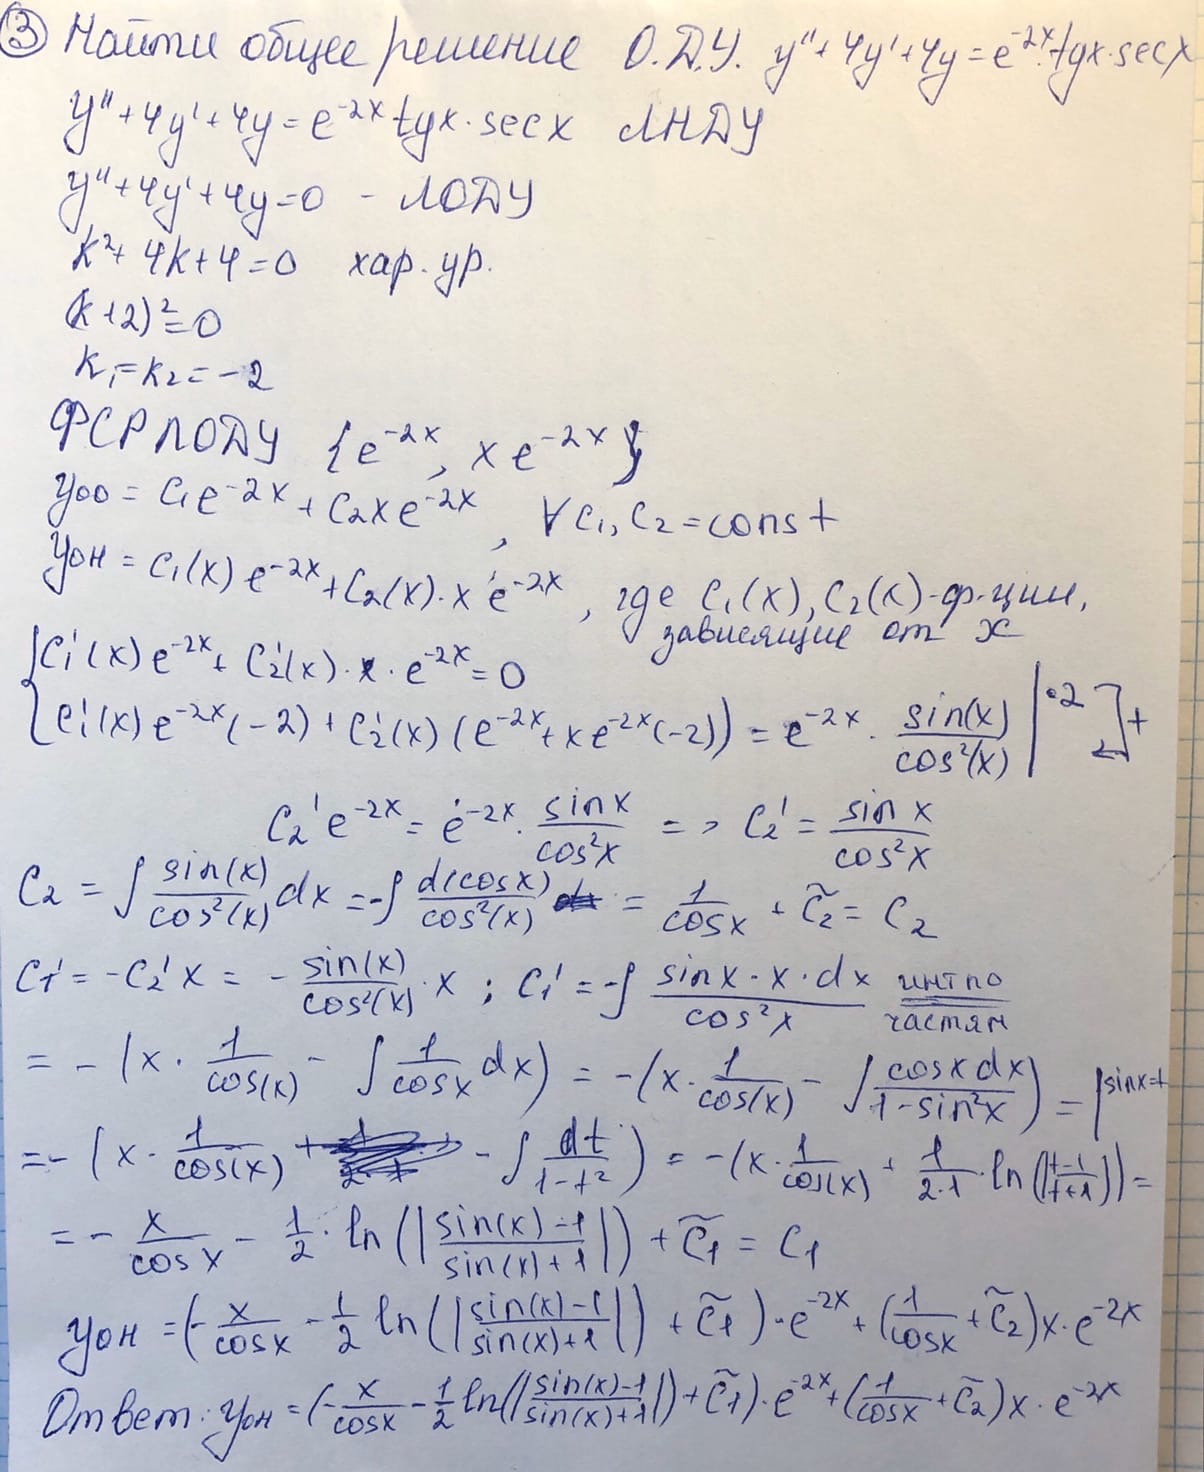 ③ Найти общее решение О.Д.У. y'' + 4y' + 4y = e^{-2x}·tgx·secx
y'' + 4y' + 4y = e^{-2x} tgx·secx ЛНДУ
y'' + 4y' + 4y = 0 - ЛОДУ
k² + 4k + 4 = 0 хар. ур.
(k+2)² = 0
k₁ = k₂ = -2
ФСР ЛОДУ {e^{-2x}, x e^{-2x}}
yоо = C₁e^{-2x} + C₂xe^{-2x}, ∀ C₁, C₂ = const
yон = C₁(x) e^{-2x} + C₂(x)·x e^{-2x}, где C₁(x), C₂(x) - ф-ции,
зависящие от x
{ C₁'(x) e^{-2x} + C₂'(x)·x·e^{-2x} = 0
{ C₁'(x) e^{-2x}(-2) + C₂'(x) (e^{-2x} + xe^{-2x}(-2)) = e^{-2x} · sin(x)/cos²(x) |·2 ]+
C₂' e^{-2x} = e^{-2x} · sinx/cos²x => C₂' = sin x/cos²x
C₂ = ∫ sin(x)/cos²(x) dx = -∫ d(cosx)/cos²(x) = 1/cosx + C̃₂ = C₂
C₁' = -C₂'x = - sin(x)/cos²(x) · x ; C₁' = -∫ sinx·x·dx/cos²x инт по частям
= - (x · 1/cos(x) - ∫ 1/cosx dx) = -(x · 1/cos(x) - ∫ cosx dx/1-sin²x) = |sinx=t
= - (x · 1/cos(x) - ∫ dt/1-t²) = -(x · 1/cos(x) + 1/2·1 · ln(|t-1/t+1|)) =
= - x/cosx - 1/2 · ln(|sin(x)-1/sin(x)+1|) + C̃₁ = C₁
yон = (- x/cosx - 1/2 ln(|sin(x)-1/sin(x)+1|) + C̃₁)·e^{-2x} + (1/cosx + C̃₂)x·e^{-2x}
Ответ: yон = (- x/cosx - 1/2 ln(|sin(x)-1/sin(x)+1|) + C̃₁)·e^{-2x} + (1/cosx + C̃₂)x·e^{-2x}